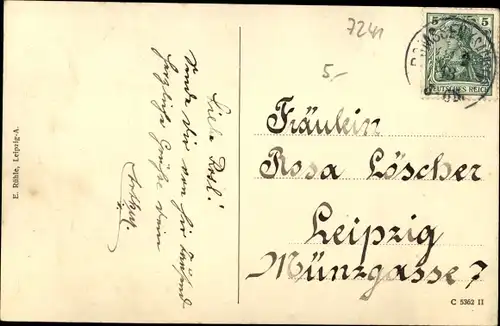 7241
5,-
5 5
DEUTSCHES REICH
Liebe Rosl!
Sende Dir von hier tausend
herzliche Grüße Dein
Fräulein
Rosa Löscher
Leipzig
Münzgasse 7
E. Rühle, Leipzig-A.
C 5362 II